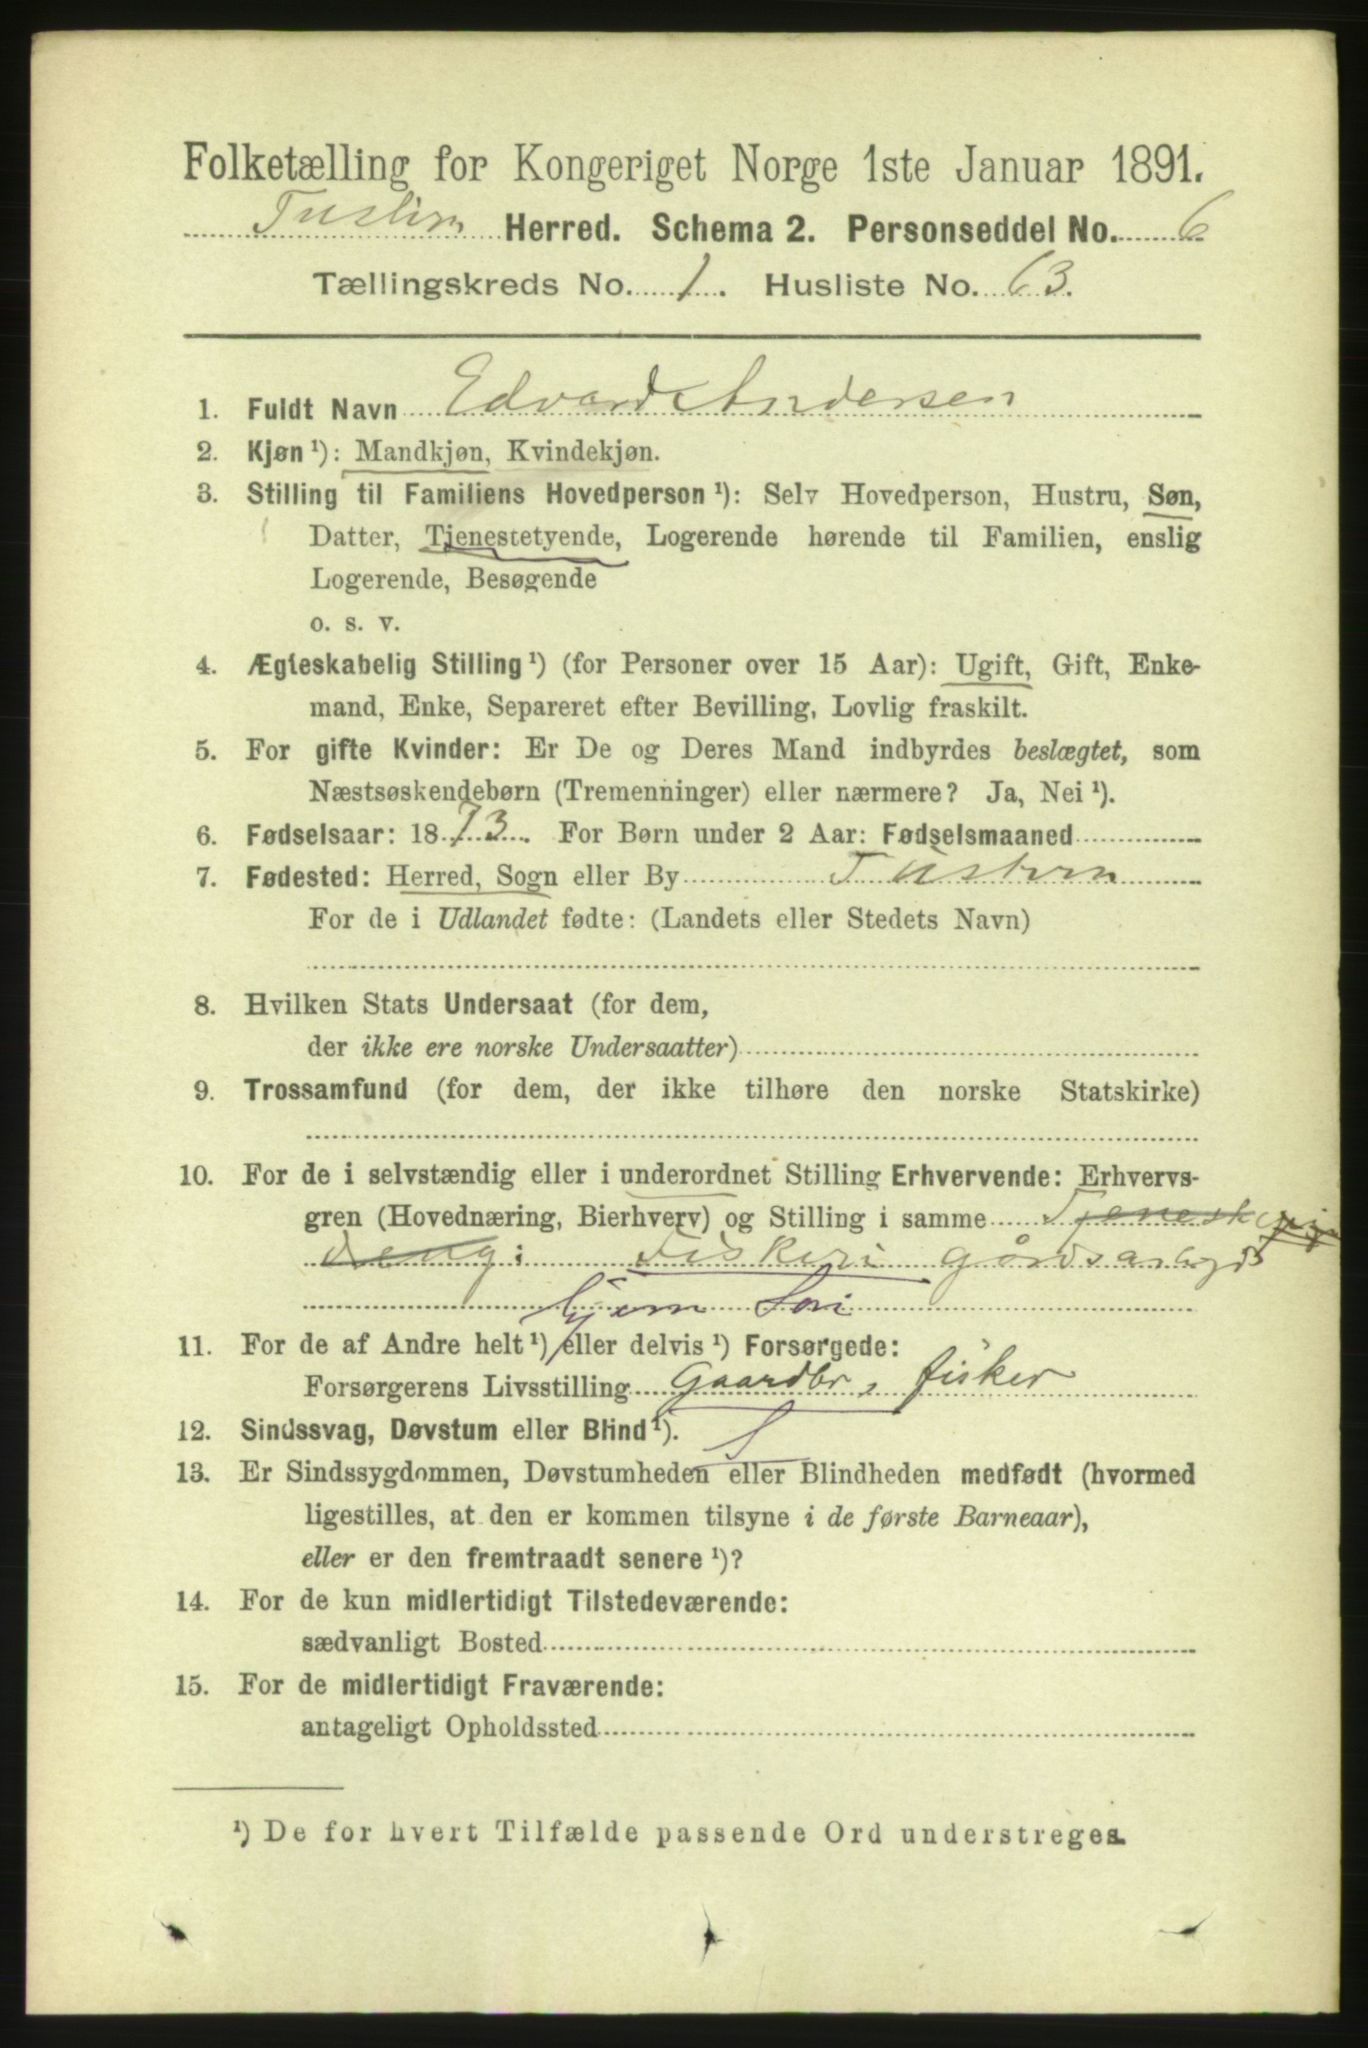 Folketælling for Kongeriget Norge 1ste Januar 1891.
Herred. Schema 2. Personseddel No. 6
Tællingskreds No. 1. Husliste No. 63.
1. Fuldt Navn Edvard Andersen
2. Kjøn ¹): Mandkjøn, Kvindekjøn.
3. Stilling til Familiens Hovedperson ¹): Selv Hovedperson, Hustru, Søn,
Datter, Tjenestetyende, Logerende hørende til Familien, enslig
Logerende, Besøgende
o. s. v.
4. Ægteskabelig Stilling ¹) (for Personer over 15 Aar): Ugift, Gift, Enke-
mand, Enke, Separeret efter Bevilling, Lovlig fraskilt.
5. For gifte Kvinder: Er De og Deres Mand indbyrdes beslægtet, som
Næstsøskendebørn (Tremenninger) eller nærmere? Ja, Nei ¹).
6. Fødselsaar: 1873. For Børn under 2 Aar: Fødselsmaaned
7. Fødested: Herred, Sogn eller By Tustern
For de i Udlandet fødte: (Landets eller Stedets Navn)
8. Hvilken Stats Undersaat (for dem,
der ikke ere norske Undersaatter)
9. Trossamfund (for dem, der ikke tilhøre den norske Statskirke)
10. For de i selvstændig eller i underordnet Stilling Erhvervende: Erhvervs-
gren (Hovednæring, Bierhverv) og Stilling i samme
Fiskeri
11. For de af Andre helt ¹) eller delvis ¹) Forsørgede:
Forsørgerens Livsstilling Gaardbr, fisker
12. Sindssvag, Døvstum eller Blind ¹). S
13. Er Sindssygdommen, Døvstumheden eller Blindheden medfødt (hvormed
ligestilles, at den er kommen tilsyne i de første Barneaar),
eller er den fremtraadt senere ¹)?
14. For de kun midlertidigt Tilstedeværende:
sædvanligt Bosted
15. For de midlertidigt Fraværende:
antageligt Opholdssted
¹) De for hvert Tilfælde passende Ord understreges.